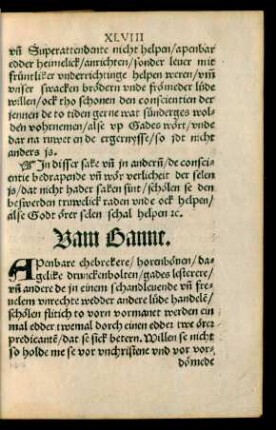 XLVIII
vñ Superattendente nicht helpen/apenbar
edder heimelick/anrichten/sonder leuer mit
früntliker vnderrichtinge helpen weren/vm̃
vnser swacken brödern vnde frömeder lüde
willen/ock tho schonen den conscientien der
jennen de to tiden gerne wat sünderges wol-
den vohrnemen/alse vp Gades wört/vnde
dar na ruwet en de ergernysse/so jdt nicht
anders js.
In disser sake vñ jn andern/de consci-
entie bedrapende vñ wör verlicheit der selen
js/dat nicht hader saken sint/schölen se den
beswerden truwelick raden vnde ock helpen/
alse Godt örer selen schal helpen ⁊c.
Vam Banne.
APenbare ehebrekere/horenhönen/da-
gelike drunckenbolten/gades lesterere/
vñ andere de jn einem schandleuende vñ fre-
uelem vnrechte wedder andere lüde handelẽ/
schölen flitich to vorn vormanet werden ein
mal edder twemal dorch einen edder twe örer
predicantẽ/dat se sick betern. Willen se nicht
so holde me se vor vnchristene vnd vor vor-
dömede